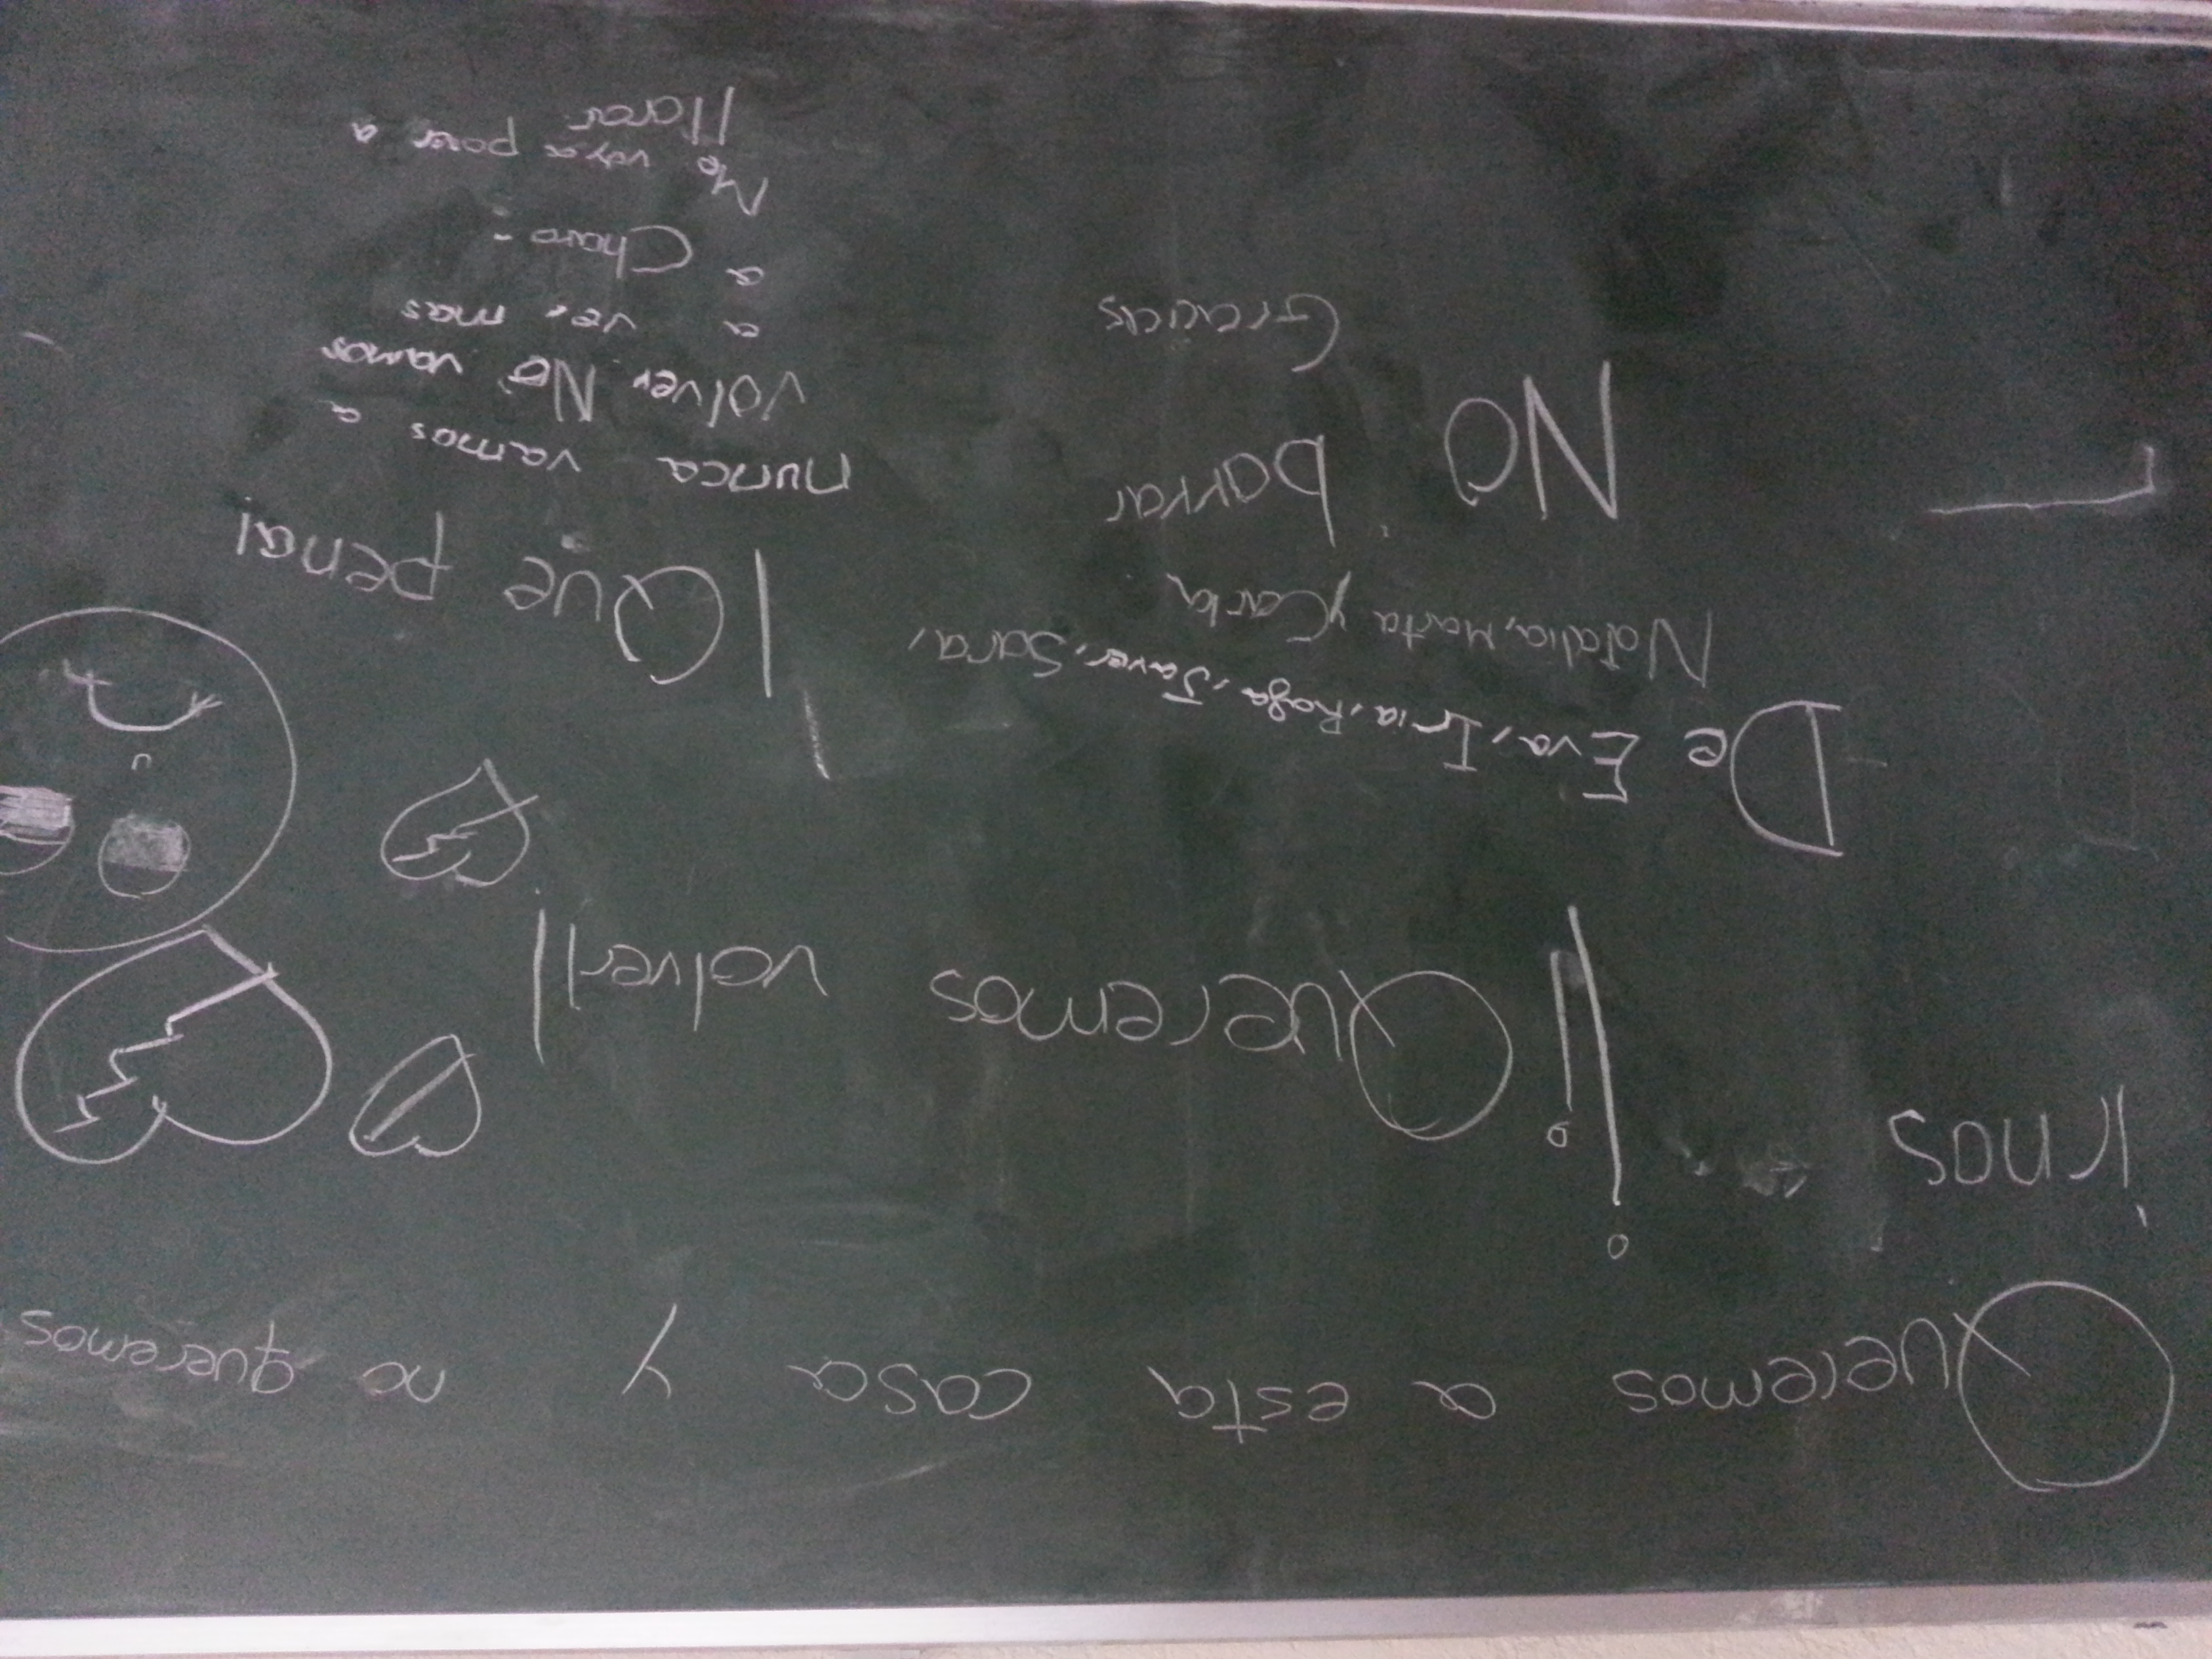 Queremos a esta casa y no queremos
irnos
¡¡Queremos volver!!
De Eva, Iria, Rafa, Javer, Sara,
Natalia, Marta y Carla
NO borrar
Gracias
¡Que pena!
nunca vamos a
volver No vamos
a ver mas
a Charo.
Me voy a poner a
llorar